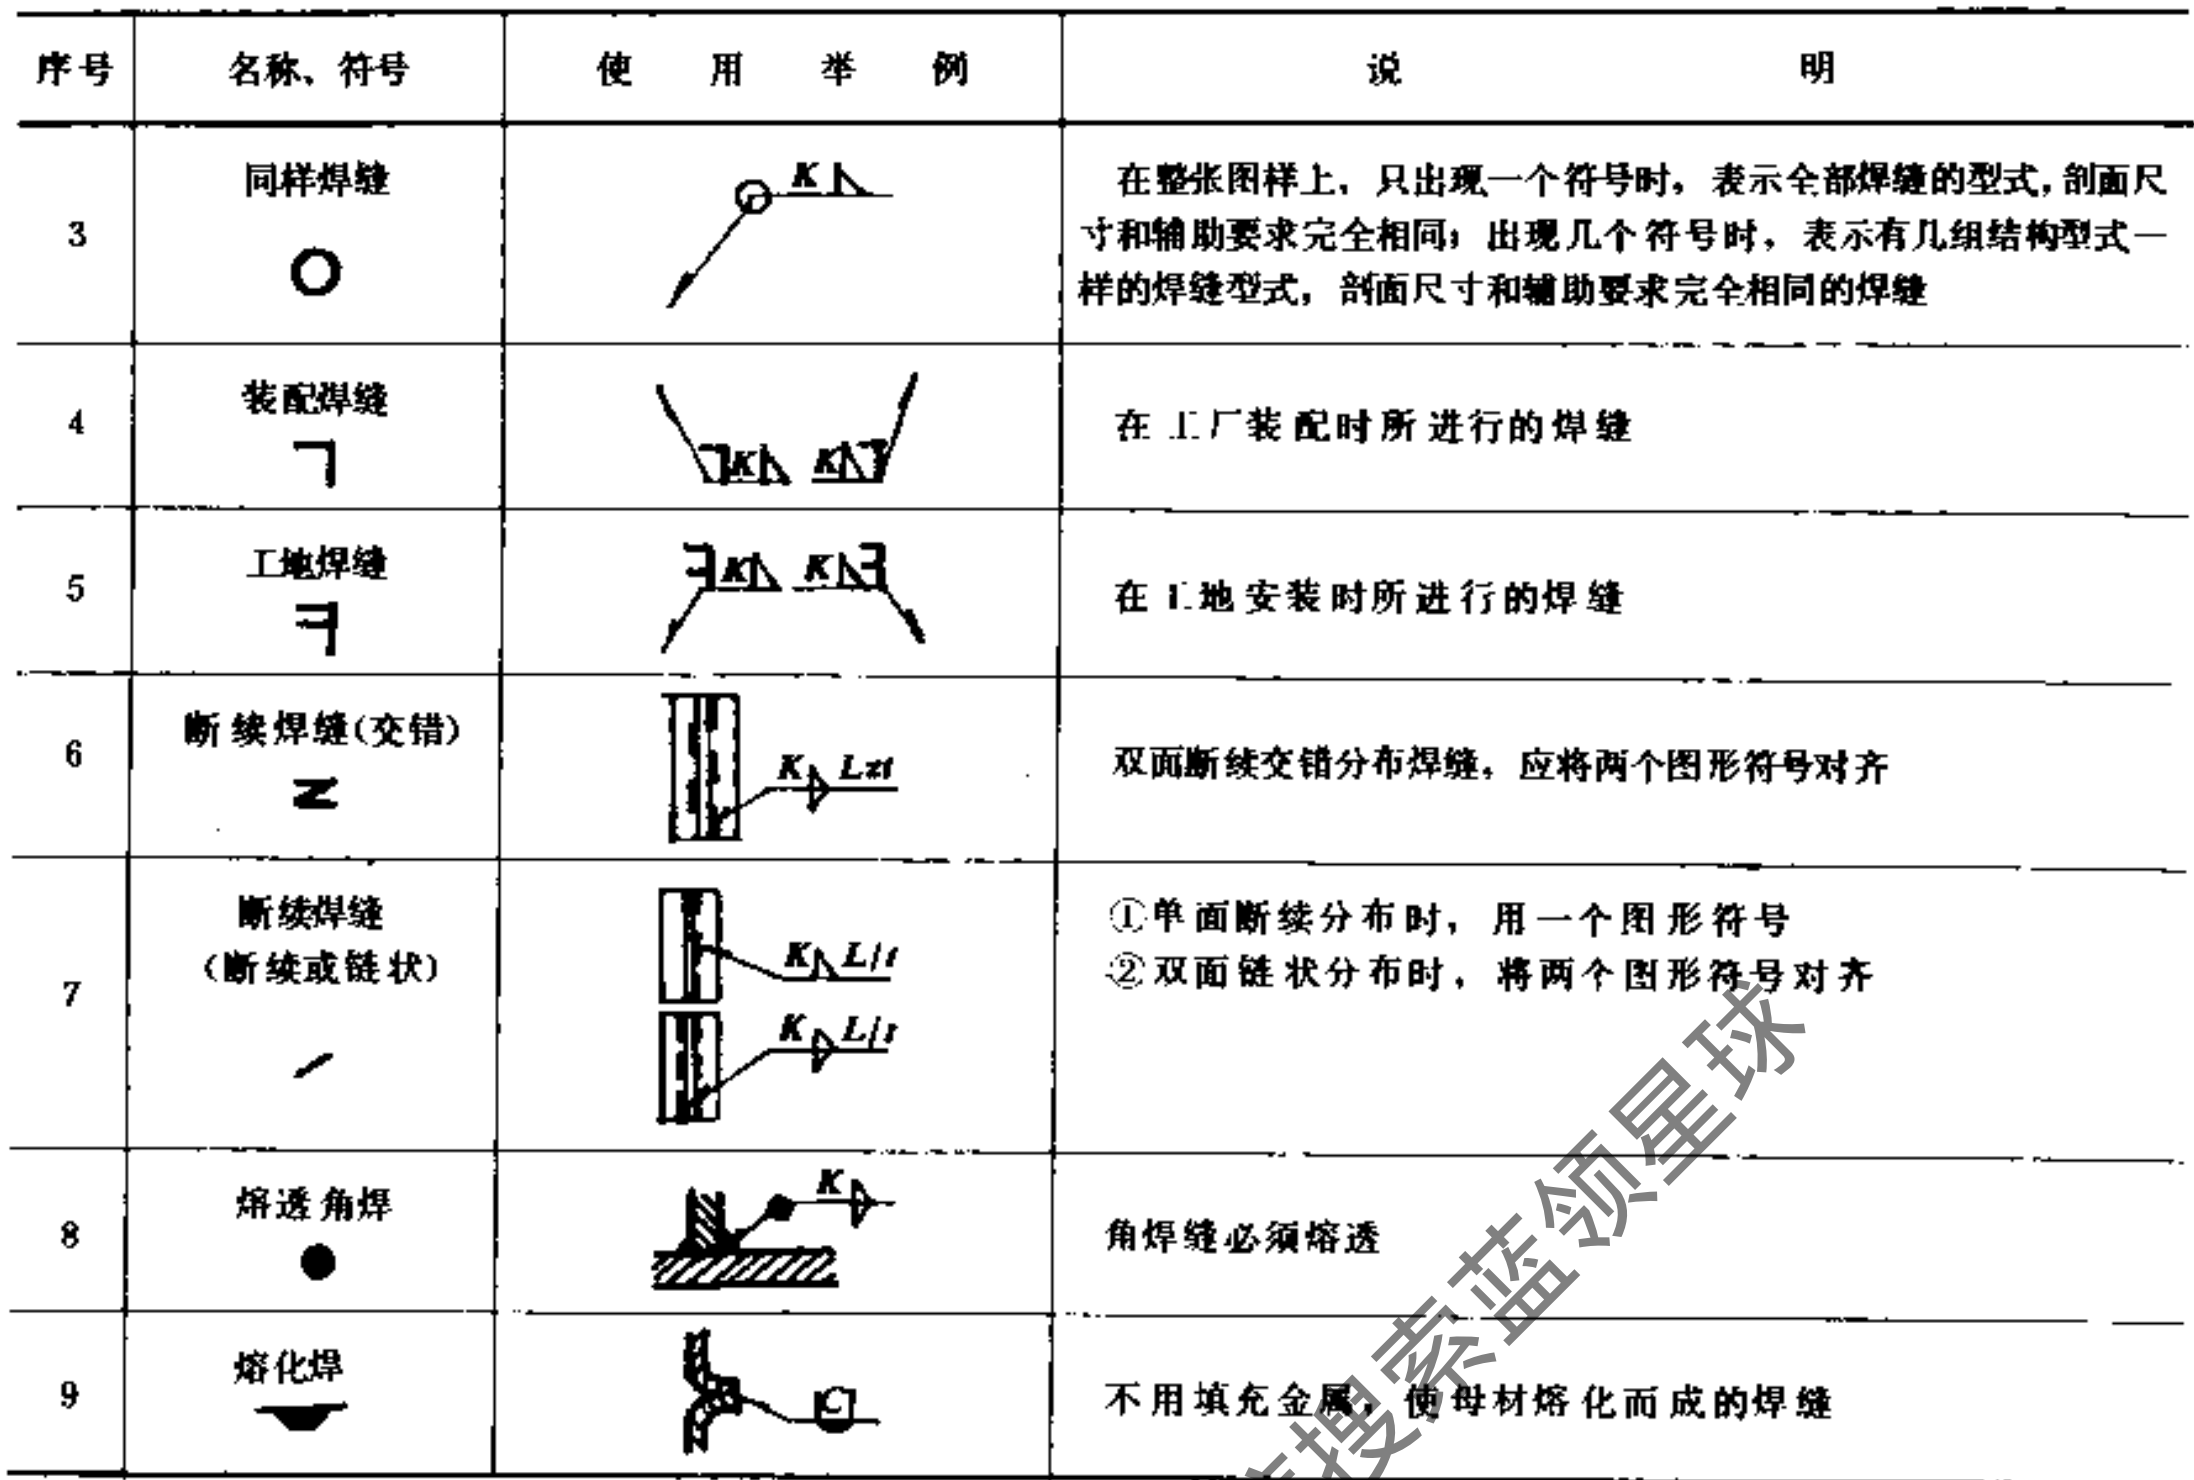 序号 名称、符号 使用举例 说明
3 同样焊缝 K 在整张图样上，只出现一个符号时，表示全部焊缝的型式，剖面尺
寸和辅助要求完全相同；出现几个符号时，表示有几组结构型式一
样的焊缝型式，剖面尺寸和辅助要求完全相同的焊缝
4 装配焊缝 K K 在工厂装配时所进行的焊缝
5 工地焊缝 K K 在工地安装时所进行的焊缝
6 断续焊缝(交错) K Lzt 双面断续交错分布焊缝，应将两个图形符号对齐
7 断续焊缝
(断续或链状)
K L/t
K L/t
①单面断续分布时，用一个图形符号
②双面链状分布时，将两个图形符号对齐
8 熔透角焊 K 角焊缝必须熔透
9 熔化焊 C 不用填充金属，使母材熔化而成的焊缝
搜索蓝领星球